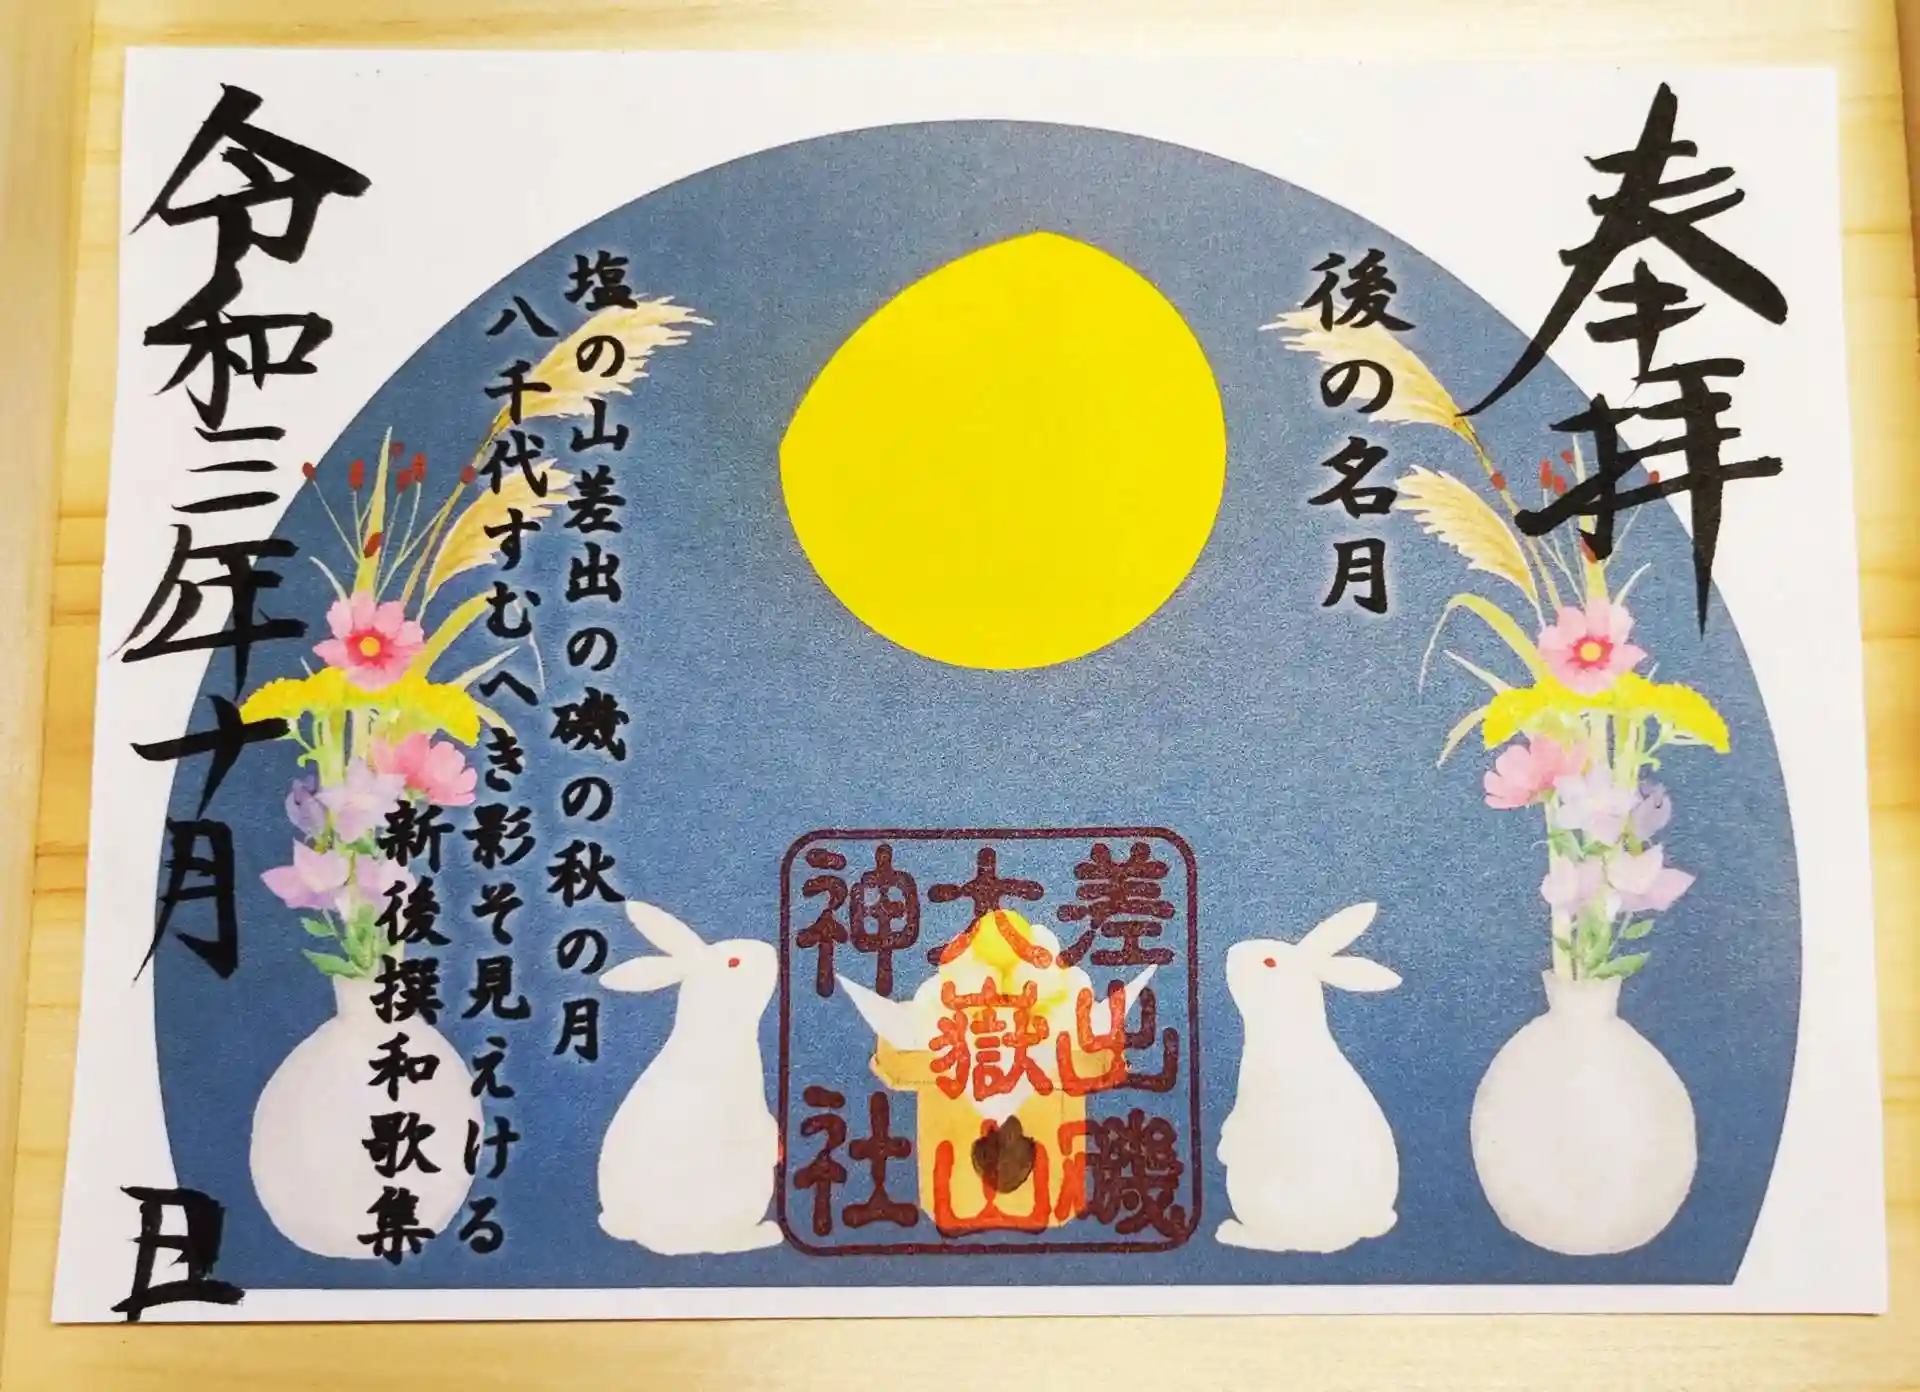 奉拝
後の名月
差出磯
大嶽山
神社
塩の山差出の磯の秋の月
八千代すむへき影そ見えける
新後撰和歌集
令和三年十月 日